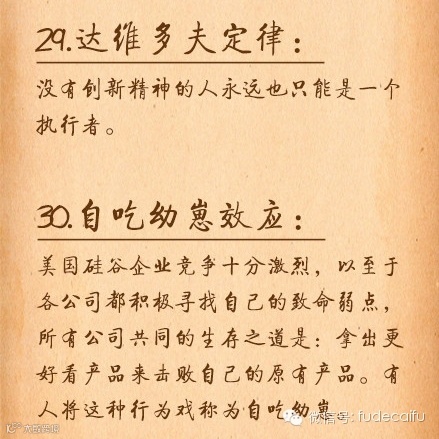 29.达维多夫定律：
没有创新精神的人永远也只能是一个
执行者。
30.自吃幼崽效应：
美国硅谷企业竞争十分激烈，以至于
各公司都积极寻找自己的致命弱点，
所有公司共同的生存之道是：拿出更
好看产品来击败自己的原有产品。有
人将这种行为戏称为自吃幼崽。
微信号: fudecaifu